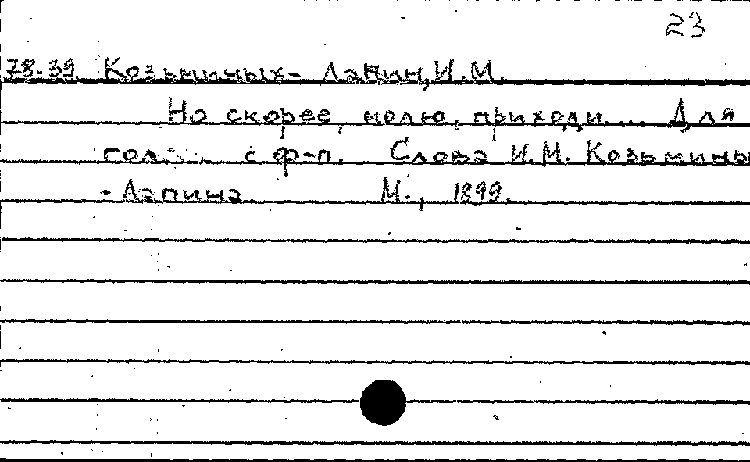 23
78-39. Козьминых-Лапин, И.М.
Но скорее, молю, приходи... Для
гол. с ф-п. Слова И.М. Козьмины
-Лапина М., 1899.